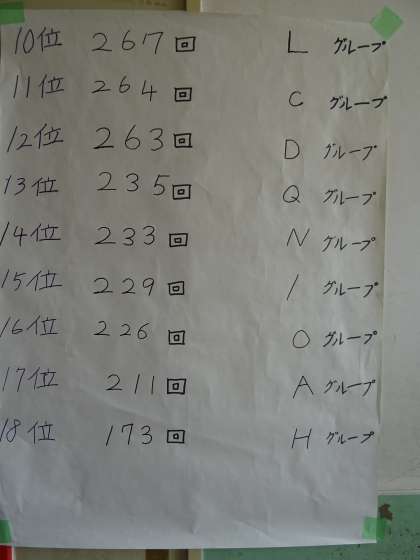 10位 267回 Lグループ
11位 264回 Cグループ
12位 263回 Dグループ
13位 235回 Qグループ
14位 233回 Nグループ
15位 229回 Iグループ
16位 226回 Oグループ
17位 211回 Aグループ
18位 173回 Hグループ